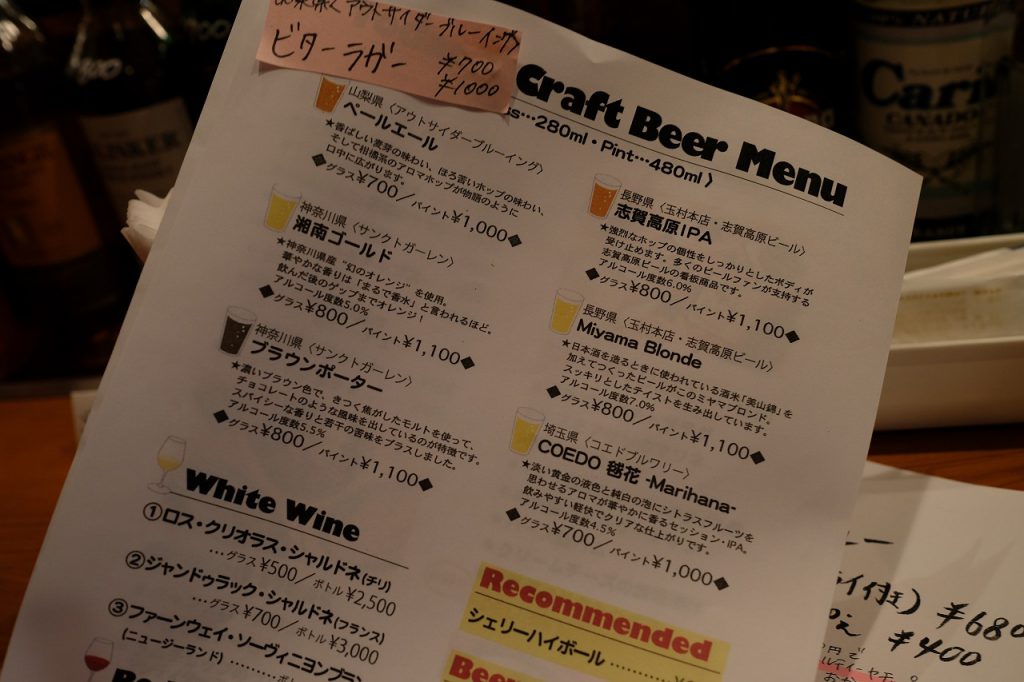 アウトサイダーブルーイング
ビターラガー ¥700
¥1000
Craft Beer Menu
…280ml・Pint…480ml 〉
山梨県〈アウトサイダーブルーイング〉
ペールエール
★香ばしい麦芽の味わい、ほろ苦いホップの味わい、
そして柑橘系のアロマホップが物語のように
口中に広がります。
◆グラス¥700/パイント¥1,000◆
神奈川県〈サンクトガーレン〉
湘南ゴールド
★神奈川県産“幻のオレンジ”を使用。
華やかな香りは「まるで香水」と言われるほど。
飲んだ後のゲップまでオレンジ！
アルコール度数5.0%
◆グラス¥800/パイント¥1,100◆
神奈川県〈サンクトガーレン〉
ブラウンポーター
★濃いブラウン色で、きつく焦がしたモルトを使って、
チョコレートのような風味を出しているのが特徴です。
スパイシーな香りと若干の苦味をプラスしました。
アルコール度数5.5%
◆グラス¥800/パイント¥1,100◆
長野県〈玉村本店・志賀高原ビール〉
志賀高原IPA
★強烈なホップの個性をしっかりとしたボディが
受け止めます。多くのビールファンが支持する
志賀高原ビールの看板商品です。
アルコール度数6.0%
◆グラス¥800/パイント¥1,100◆
長野県〈玉村本店・志賀高原ビール〉
Miyama Blonde
★日本酒を造るときに使われている酒米「美山錦」を
加えてつくったビールがこのミヤマブロンド。
スッキリとしたテイストを生み出しています。
アルコール度数7.0%
◆グラス¥800/パイント¥1,100◆
埼玉県〈コエドブルワリー〉
COEDO 毬花 -Marihana-
★淡い黄金の液色と純白の泡にシトラスフルーツを
思わせるアロマが華やかに香るセッション・IPA。
飲みやすい軽快でクリアな仕上がりです。
アルコール度数4.5%
◆グラス¥700/パイント¥1,000◆
White Wine
①ロス・クリオラス・シャルドネ(チリ)
…グラス¥500/ボトル¥2,500
②ジャンドゥラック・シャルドネ(フランス)
…グラス¥700/ボトル¥3,000
③ファーンウェイ・ソーヴィニヨンブラン
(ニュージーランド)
Recommended
シェリーハイボール
Beer
¥680
¥400